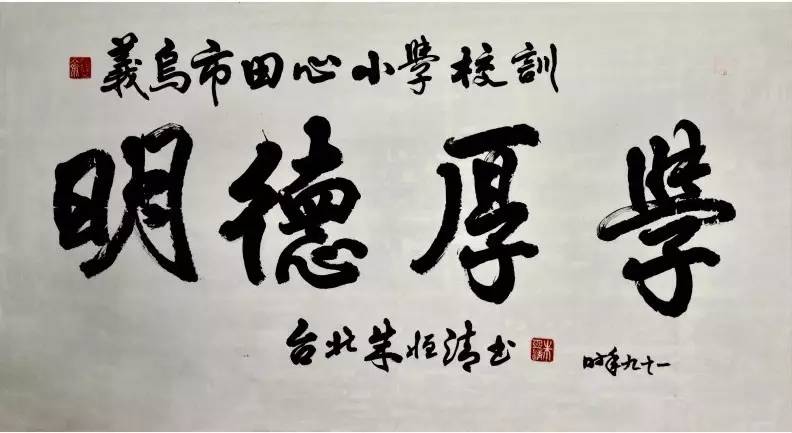 義烏市田心小學校訓
明德厚學
台北朱恒清书
时年九十一